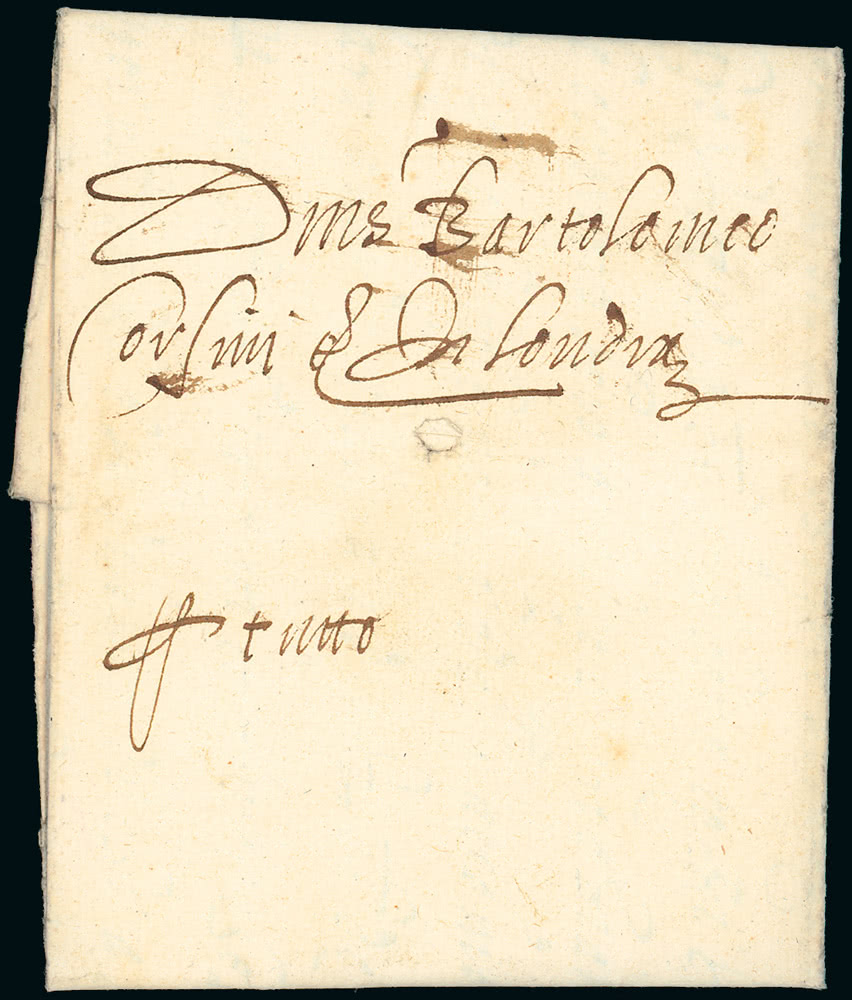 Dms Bartolomeo
Corsini & In londra
tutto